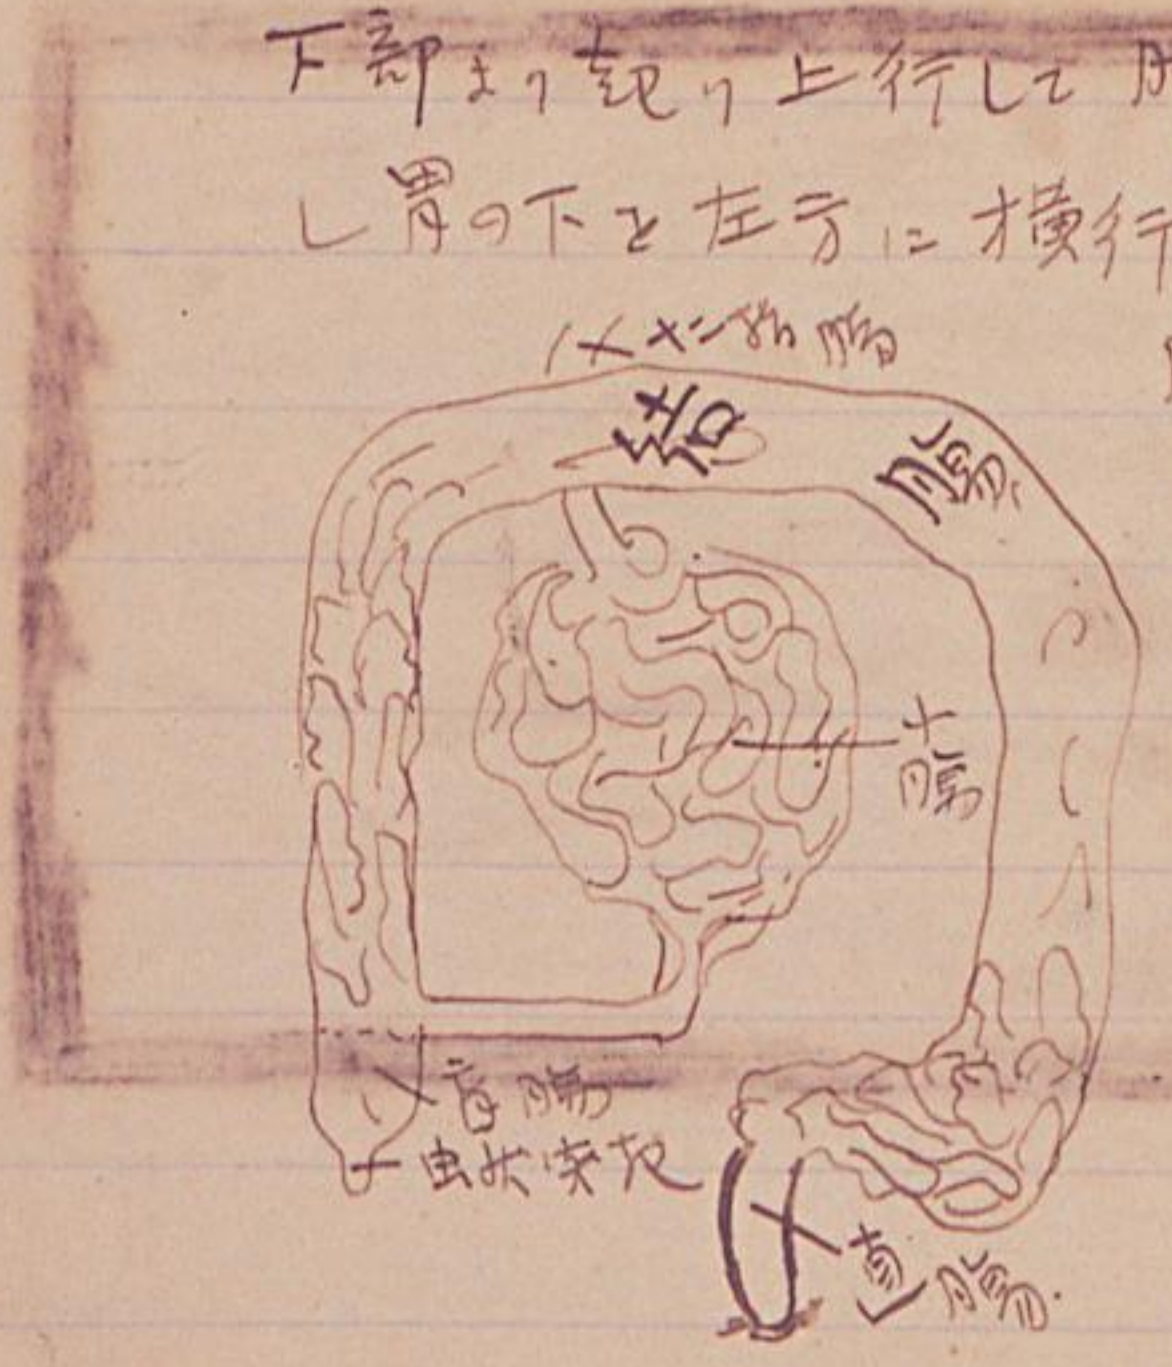 下部より起り上行して
し胃の下を左方に横行
結腸
結
腸
小腸
盲腸
虫状突起
直腸